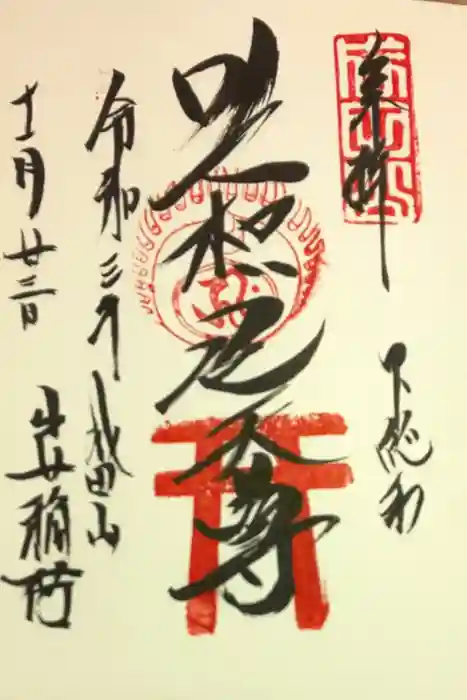 奉拝
下総
吒枳尼天尊
令和三年 成田山
十一月廿三日 出世稲荷